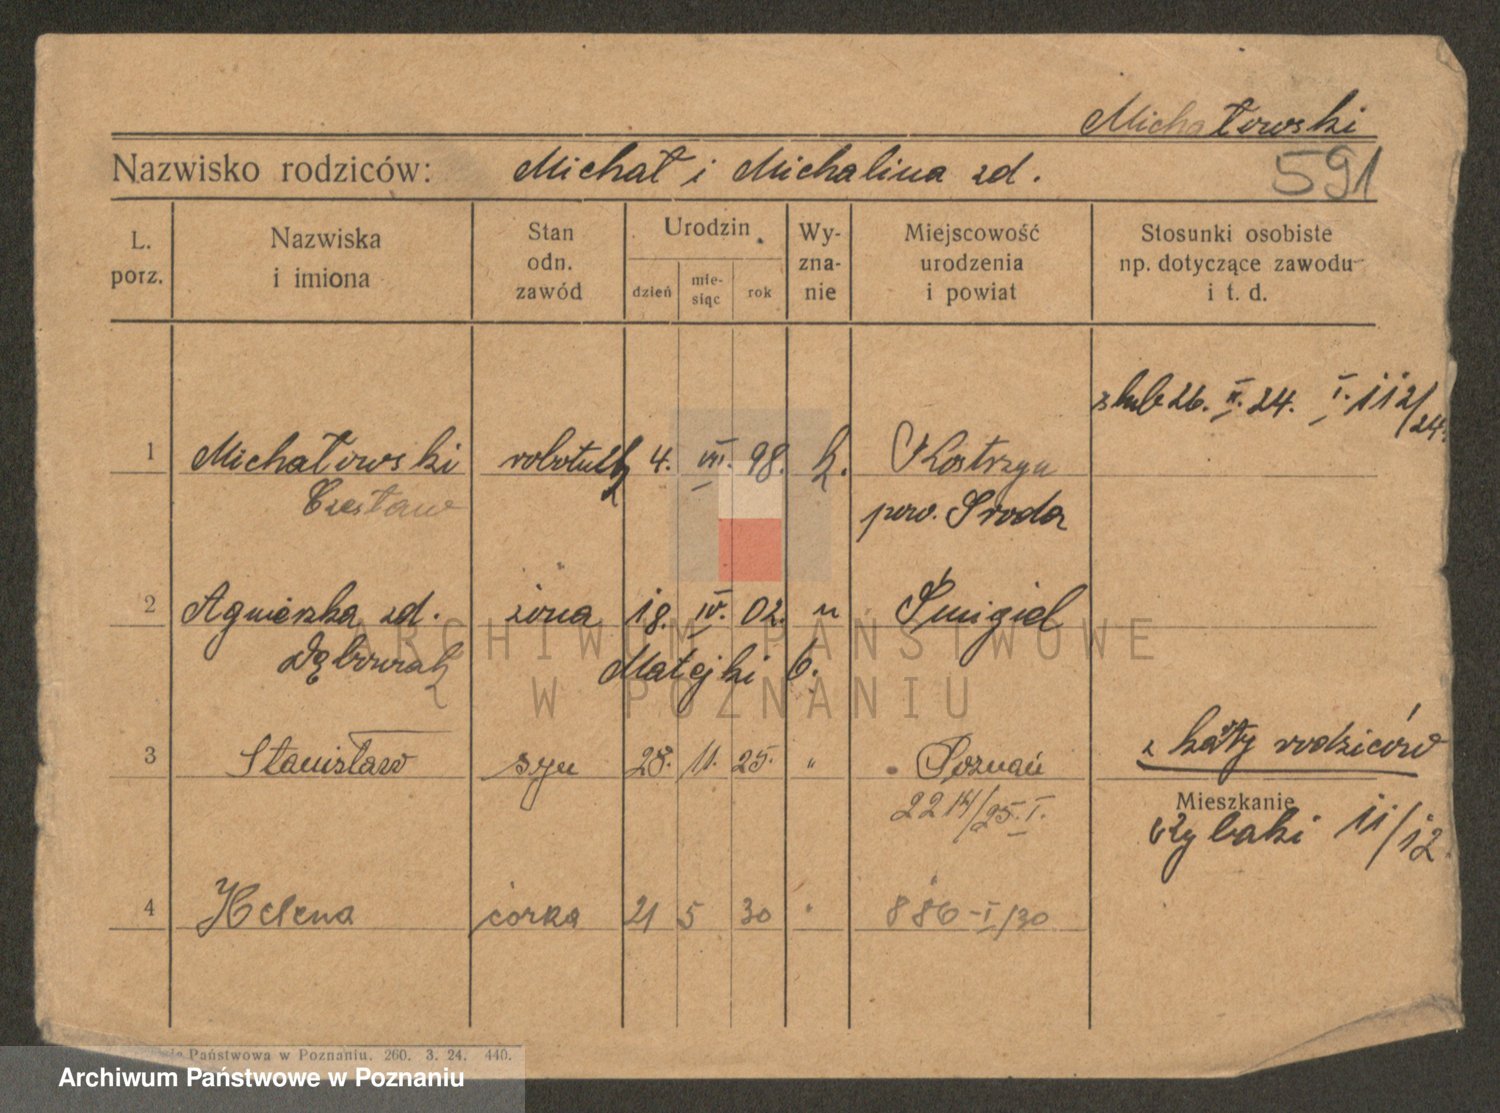 Michałowski
Nazwisko rodziców: Michał i Michalina zd.
591
L. porz.
Nazwiska i imiona
Stan odn. zawód
Urodzin
dzień
mie-
siąc
rok
Wy-
zna-
nie
Miejscowość urodzenia i powiat
Stosunki osobiste
np. dotyczące zawodu
i t. d.
ślub 26. II. 24. I. 112/24.
1 Michałowski robotnik 4. VII. 98. k. Kostrzyn
Czesław pow. Środa
2 Agnieszka zd. żona 18. IV. 02. " Śmigiel
Dębowiak Matejki 6.
z karty rodziców
3 Stanisław syn 28. 11. 25. " Poznań
2214/25. I.
Mieszkanie
Rybaki 11/12.
4 Helena córka 21 5 30 " 886-I/30
Państwowa w Poznaniu. 260. 3. 24. 440.
ARCHIWUM PAŃSTWOWE
W POZNANIU
Archiwum Państwowe w Poznaniu